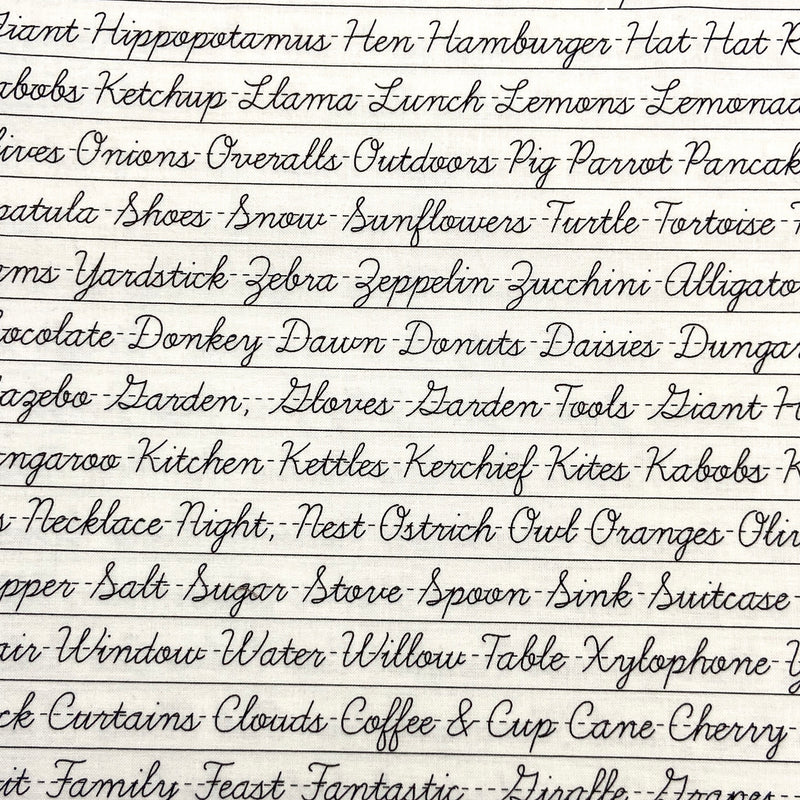 Giant-Hippopotamus-Hen-Hamburger-Hat-Hat-R
abobs-Ketchup-Llama-Lunch-Lemons-Lemonad
lives-Onions-Overalls-Outdoors-Pig-Parrot-Pancak
patula-Shoes-Snow--Sunflowers-Turtle-Tortoise-T
rms-Yardstick--Zebra-Zeppelin-Zucchini-Alligato
hocolate-Donkey-Dawn-Donuts-Daisies-Dungar
Gazebo-Garden,--Gloves-Garden-Tools-Giant-H
angaroo-Kitchen-Kettles-Kerchief-Kites-Kabobs-K
s-Necklace-Night,-Nest-Ostrich-Owl-Oranges-Oliv
pper-Salt-Sugar-Stove-Spoon-Sink-Suitcase-
air-Window-Water-Willow-Table-Xylophone-Y
ck-Curtains-Clouds-Coffee-&-Cup-Cane-Cherry-
it-Family-Feast-Fantastic---Giraffe-Grapes--